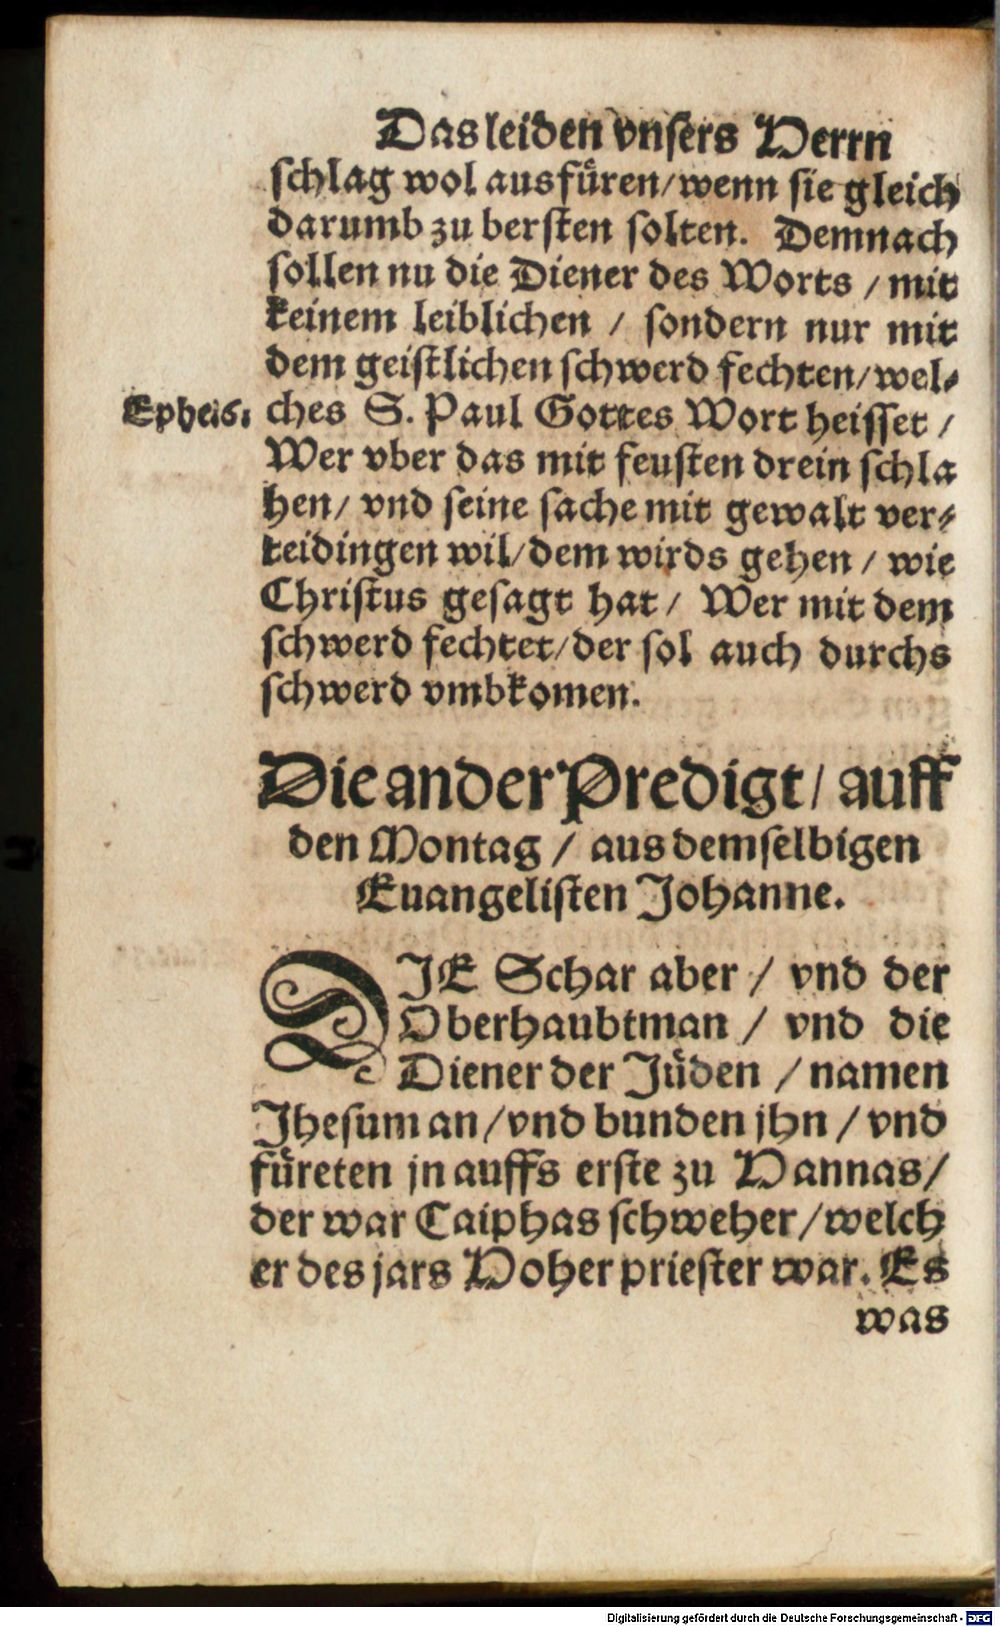 Das leiden vnsers Herrn
schlag wol ausfüren/wenn sie gleich
darumb zu bersten solten. Demnach
sollen nu die Diener des Worts / mit
keinem leiblichen / sondern nur mit
dem geistlichen schwerd fechten/wel-
Ephe.6. ches S. Paul Gottes Wort heisset /
Wer vber das mit feusten drein schla
hen/ vnd seine sache mit gewalt ver-
teidingen wil/dem wirds gehen / wie
Christus gesagt hat / Wer mit dem
schwerd fechtet/der sol auch durchs
schwerd vmbkomen.
Die ander Predigt/ auff
den Montag / aus demselbigen
Euangelisten Johanne.
DIE Schar aber / vnd der
Oberhaubtman / vnd die
Diener der Jüden / namen
Jhesum an/vnd bunden jhn / vnd
füreten jn auffs erste zu Hannas/
der war Caiphas schweher/welch
er des jars Hoherpriester war. Es
was
Digitalisierung gefördert durch die Deutsche Forschungsgemeinschaft - DFG